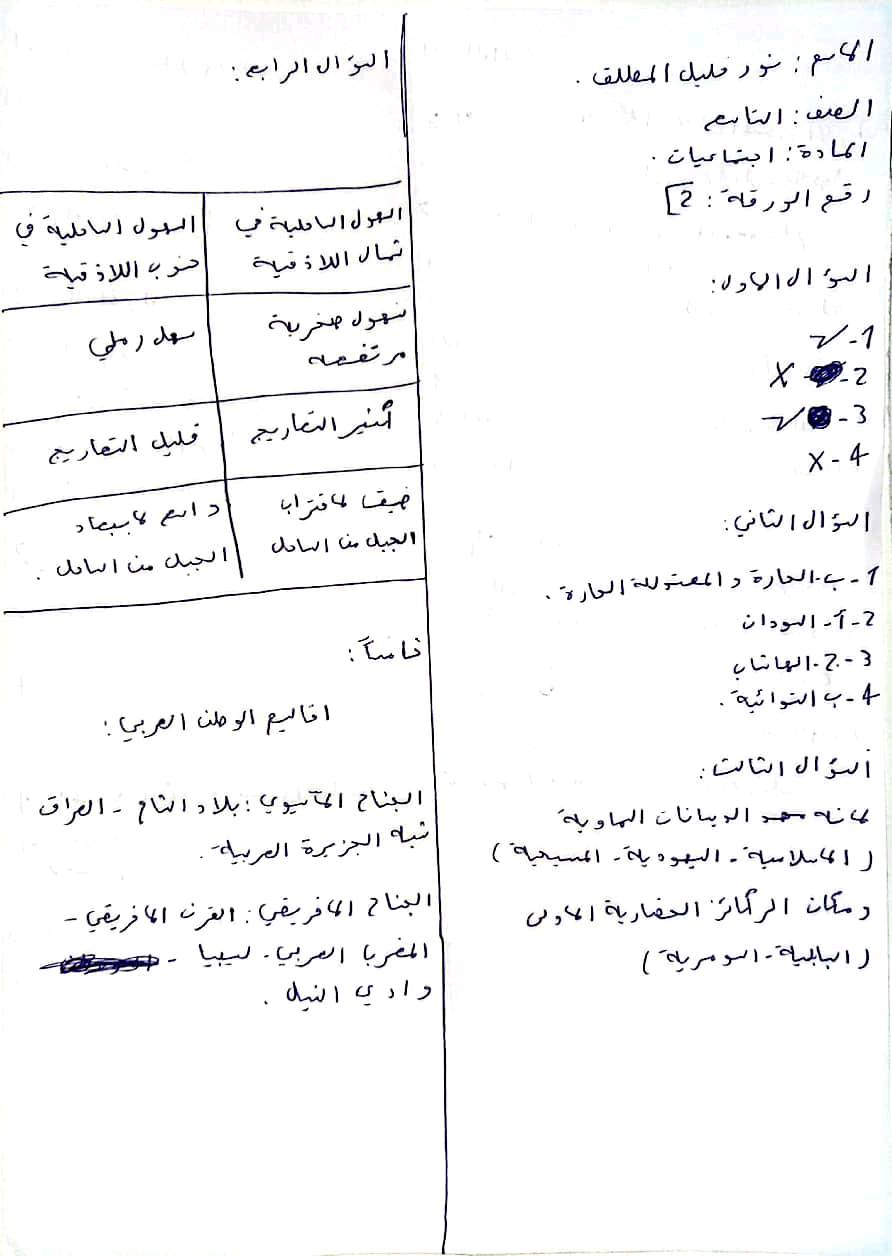 الاسم : نور خليل المطلق .
الصف : التاسع
المادة : اجتماعيات .
رقم الورقة : 2
السؤال الاول :
1- ✓
2- X
3- ✓
4- X
السؤال الثاني :
1- ب- الحارة و المعتدلة الحارة .
2- أ- السودان
3- ج- الهاشاب
4- ب التوائية .
السؤال الثالث :
لانه مهد الديانات السماوية
( الاسلامية - اليهودية - المسيحية )
و مكان الركائز الحضارية الاولى
( البابلية - السومرية )
السؤال الرابع :
السهول الساحلية في شمال اللاذقية | السهول الساحلية في جنوب اللاذقية
سهول صخرية مرتفعه | سهل رملي
كثير التعاريج | قليل التعاريج
ضيق لاقتراب الجبل من الساحل | واسع لابتعاد الجبل من الساحل .
خامساً :
اقاليم الوطن العربي :
الجناح الآسيوي : بلاد الشام - العراق
شبه الجزيرة العربية .
الجناح الافريقي : القرن الافريقي -
المغربا العربي - ليبيا -
وادي النيل .